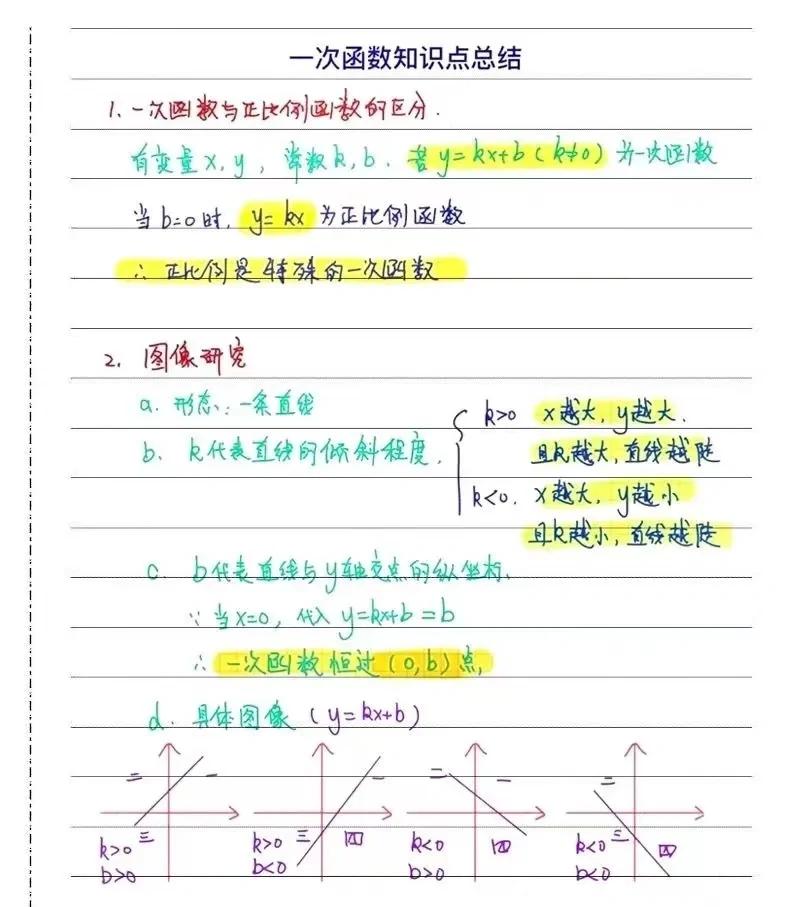 一次函数知识点总结
1. 一次函数与正比例函数的区分.
有变量x, y, 常数k, b. 若y=kx+b(k≠0)为一次函数
当b=0时, y=kx 为正比例函数
∴ 正比例是特殊的一次函数
2. 图像研究
a. 形态: 一条直线
b. k代表直线的倾斜程度.
k>0 x越大, y越大.
且k越大, 直线越陡
k<0. x越大, y越小
且k越小, 直线越陡
c. b代表直线与y轴交点的纵坐标.
∵ 当x=0, 代入 y=kx+b=b
∴ 一次函数恒过(0,b)点,
d. 具体图像(y=kx+b)
二 一 三
k>0
b>0
一 三 四
k>0
b<0
二 一 四
k<0
b>0
二 三 四
k<0
b<0